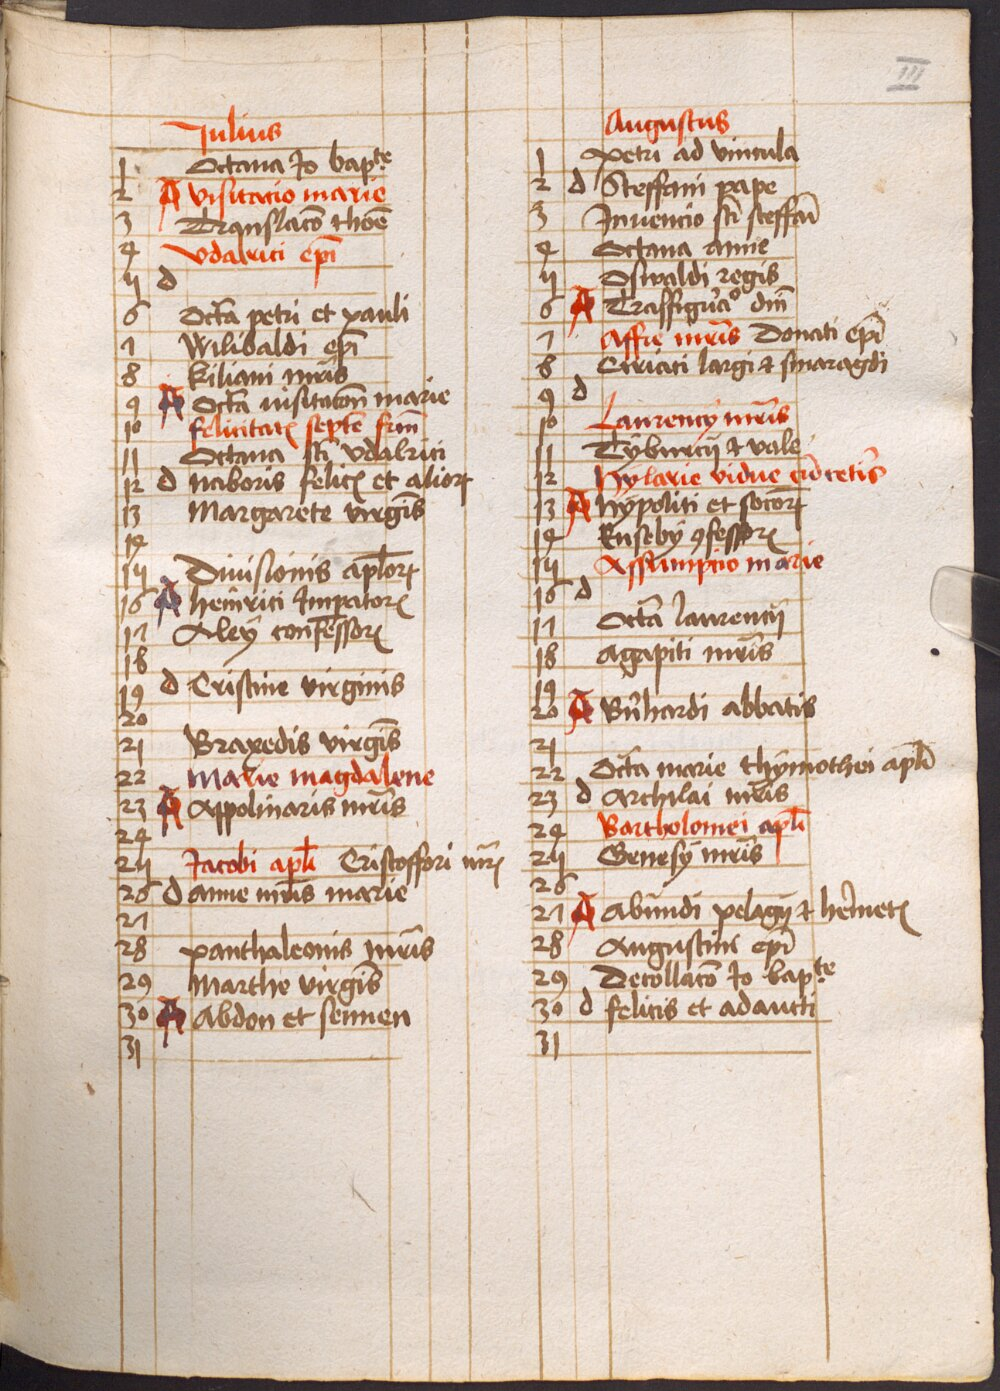 III
Julius
1 Octaua Jo bapte
2 A visitacio marie
3 Translaco thoe
4 vdalrici epi
5 d
6 Octa petri et pauli
7 Wilibaldi epi
8 kiliani mris
9 A Octa visitacon marie
10 felicitatis septe frm
11 Octaua sti vdalrici
12 d naboris felicis et alior
13 Margarete virgis
14
15 Diuisionis aplor
16 A heinrici Impatoris
17 Aley confessoris
18
19 d Cristine virginis
20
21 Braxedis virgis
22 Marie magdalene
23 A Appolinaris mris
24
25 Jacobi apli Cristoffori mris
26 d anne mris marie
27
28 panthaleonis mris
29 Marthe virgis
30 A Abdon et sennen
31
Augustus
1 petri ad vincula
2 d Steffani pape
3 Inuencio sti steffai
4 Octaua anne
5 Oswaldi regis
6 A Trassfigua dni
7 Affre mris Donati epi
8 Ciriaci largi & smaragdi
9 d
10 Laurency mris
11 Tyburcij & vale
12 hylarie vidue
13 A hypoliti et socior
14 Euseby 9fessoris
15 Assumptio marie
16 d
17 Octa laurencij
18 Agapiti mris
19
20 A Bnhardi abbatis
21
22 Octa marie thymothei apli
23 d Archilai mris
24 Bartholomei apli
25 Genesy mris
26
27 A Abundi pelagij & hermetis
28 Augustini epi
29 Decollaco Jo bapte
30 d felicis et adaucti
31